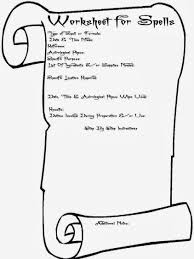 Worksheet for Spells
Type of Spell or Formula:
Date & Time Made:
Reference:
Astrological Hours:
Specific Purpose:
List Of Ingredients &/or Supplies Needed:
Specific Location Required:
Date, Time & Astrological Hours When Used:
Results:
Deities Invoke During Preparation &/or Use:
Step By Step Instructions
Additional Notes: